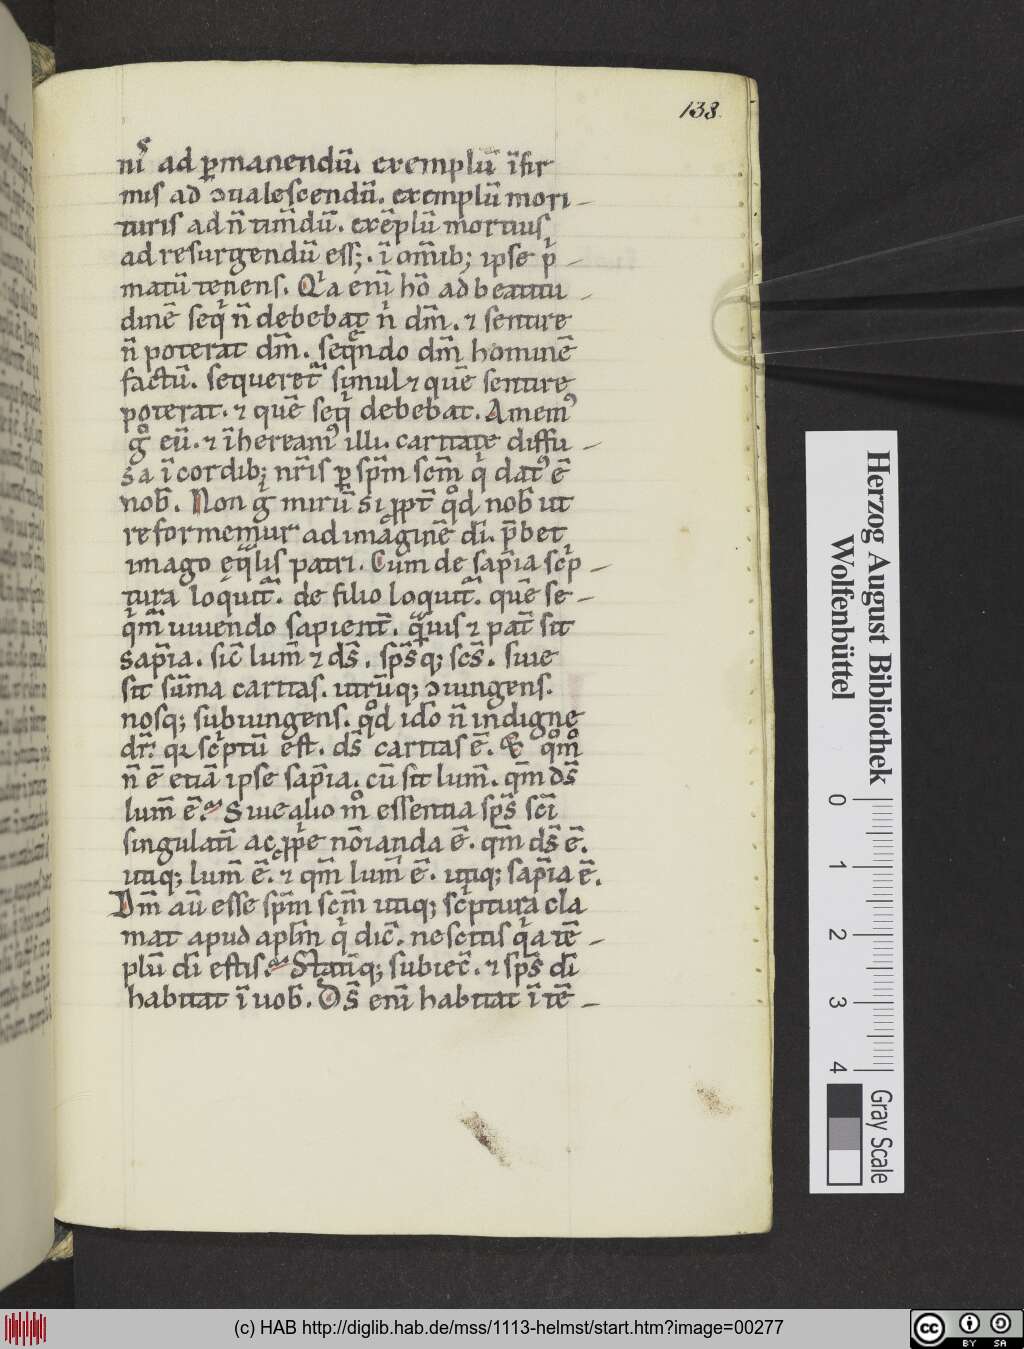 138
nı̄s ad ꝑmanendū. exemplū īfir
mis ad ↄualescendū. exemplū mori-
turis ad n̄ tim̄dū. exēplū mortuis
ad resurgendū ess;. ī om̄ib; ipse p̄-
matū tenens. Qͥa enī hō ad beatitu-
dinē seqͥ n̄ debebat n̄ dm̄. ⁊ sentire
n̄ poterat dm̄. seqͤndo dm̄ hominē
factū. sequeret᷑ simul ⁊ quē sentire
poterat. ⁊ quē seqͥ debebat. Amemꝰ
gͦ eū. ⁊ īhereamꝰ illi. caritate diffu-
sa ī cordib; nr̄is ꝑ spm̄ scm̄ qͥ datꝰ ē
nob̄. Non gͦ mirū si ꝓpt̄ qͦd nob̄ ut
reformemur ad imaginē dī. p̄bet
imago eqͣlis patri. Cum de sap̄ia scͥp-
tura loquit᷑. de filio loquit᷑. quē se-
qͥm̄ uiuendo sapient̄. qͣuis ⁊ pat̄ sit
sap̄ia. sic̄ lum̄ ⁊ ds̄. sps̄q; scs̄. siue
sit sūma caritas. utrūq; ↄiungens.
nosq; subiungens. qͦd ido n̄ indigne
dr̄. qꝛ scͥptū est. ds̄ caritas ē. & qͦmͦ
n̄ ē etiā ipse sap̄ia. cū sit lum̄. qm̄ ds̄
lum̄ ē. Siue alio mͦ essentia sps̄ scī
singulatī ac ꝓpͥe nōıanda ē. qm̄ ds̄ ē.
utiq; lum̄ ē. ⁊ qm̄ lum̄ ē. utiq; sap̄ia ē.
Dm̄ aū esse spm̄ scm̄ utiq; scͥptura cla
mat apud aplm̄ qͥ dic̄. nescitis qͥa tē-
plū dī estis. Statīq; subiec̄. ⁊ sps̄ dī
habitat ī uob̄. Ds̄ enī habitat ī tē-
Herzog August Bibliothek
Wolfenbüttel
0 1 2 3 4
Gray Scale
(c) HAB http://diglib.hab.de/mss/1113-helmst/start.htm?image=00277
cc BY SA